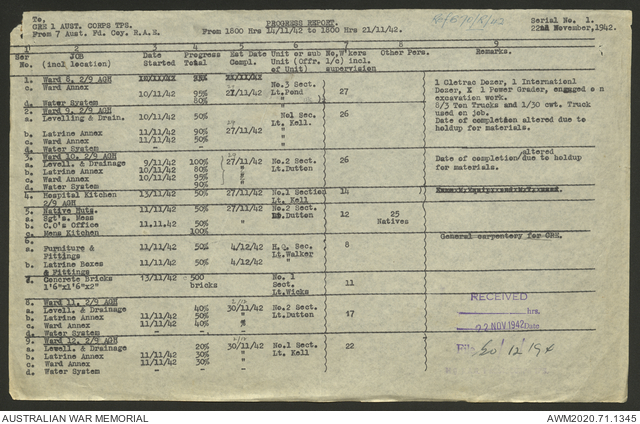 To,
CRE 1 AUST. CORPS TPS.
From 7 Aust. Fd. Coy. R.A.E.
PROGRESS REPORT.
From 1800 Hrs 14/11/42 to 1800 Hrs 21/11/42.
Serial No. 1.
22nd November, 1942.
1 2 3 4 5 6 7 8 9
Ser No. JOB (incl location) Date Started Progress Total Est Date Compl. Unit or sub Unit (Offr. i/c) incl. of Unit) No. W'kers incl. supervision Other Pers. Remarks.
1. Ward 8, 2/9 AGH
c. Ward Annex 10/11/42 95% 21/11/42 No.3 Section Lt.Pond 27
d. Water System 80%
1 Cletrac Dozer, 1 International
Dozer, X 1 Power Grader, engaged on
excavation work.
8/3 Ton Trucks and 1/30 cwt. Truck
used on job.
Date of completion altered due to
holdup for materials.
2. Ward 9, 2/9 AGH
a. Levelling & Drain. 10/11/42 50% No1 Sec. Lt. Kell. 26
b. Latrine Annex 11/11/42 90% 27/11/42 "
c. Ward Annex 11/11/42 50% "
d. Water System - - "
3. Ward 10, 2/9 AGH
a. Levell. & Drainage 9/11/42 100% 27/11/42 No.2 Sect. 26
b. Latrine Annex 10/11/42 80% " Lt.Dutton
c. Ward Annex 10/11/42 95% "
d. Water System 90% "
altered
Date of completion/due to holdup
for materials.
4. Hospital Kitchen 13/11/42 50% 27/11/42 No.1 Section 14
2/9 AGH Lt. Kell
5. Native Huts.
a. Sgt's. Mess 11/11/42 50% 27/11/42 No.2 Sect. Lt.Dutton 12 25 Natives
b. C.O's Office 11.11/42 50%
c. Mens Kitchen 100%
6.
a. Furniture & Fittings 11/11/42 50% 4/12/42 H.Q. Sec. Lt.Walker 8
b. Latrine Boxes & Fittings 11/11/42 50% 4/12/42 "
General carpentery for CRE.
7. Concrete Bricks 13/11/42 500 bricks No. 1 Sect. Lt.Wicks 11
1'6"x1'6"x2"
8. Ward 11, 2/9 AGH
a. Levell. & Drainage 40% 30/11/42 No.2 Sect. 17
b. Latrine Annex 11/11/42 50% " Lt.Dutton
c. Ward Annex 11/11/42 40% "
d. Water System - -
9. Ward 12, 2/9 AGH
a. Lewell. & Drainage 20% 30/11/42 No.1 Sect. 22
b. Latrine Annex 11/11/42 30% " Lt. Kell
c. Ward Annex 11/11/42 30% "
d. Water System - - "
RECEIVED
hrs.
22 NOV 1942 Date
AUSTRALIAN WAR MEMORIAL
AWM2020.71.1345